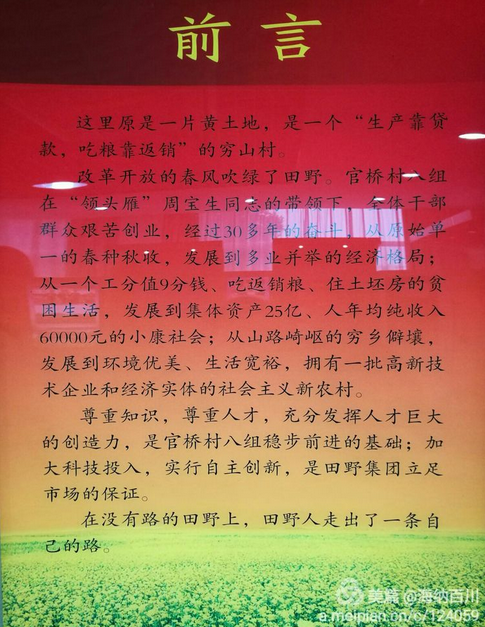 前言
这里原是一片黄土地，是一个“生产靠贷
款，吃粮靠返销”的穷山村。
改革开放的春风吹绿了田野。官桥村八组
在“领头雁”周宝生同志的带领下，全体干部
群众艰苦创业，经过30多年的奋斗，从原始单
一的春种秋收，发展到多业并举的经济格局；
从一个工分值9分钱、吃返销粮、住土坯房的贫
困生活，发展到集体资产25亿、人年均纯收入
60000元的小康社会；从山路崎岖的穷乡僻壤，
发展到环境优美、生活宽裕，拥有一批高新技
术企业和经济实体的社会主义新农村。
尊重知识，尊重人才，充分发挥人才巨大
的创造力，是官桥村八组稳步前进的基础；加
大科技投入，实行自主创新，是田野集团立足
市场的保证。
在没有路的田野上，田野人走出了一条自
己的路。
美篇@海纳百川
a.meipian.cn/c/124059